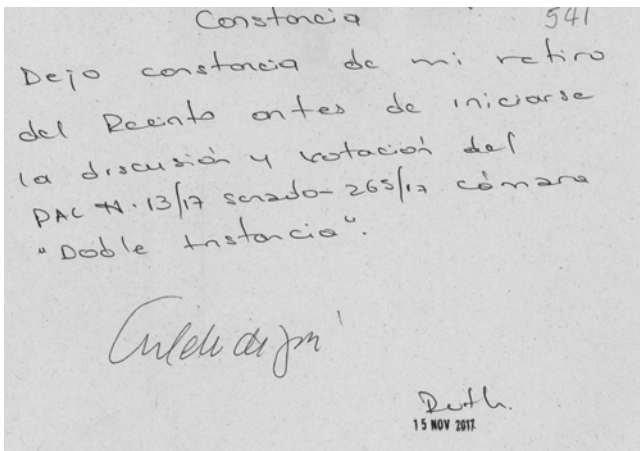 Constancia 541
Dejo constancia de mi retiro
del Recinto antes de iniciarse
la discusión y votación del
PAL N. 13/17 senado - 265/17 cámara
"Doble Instancia".
Ruth.
15 NOV 2017